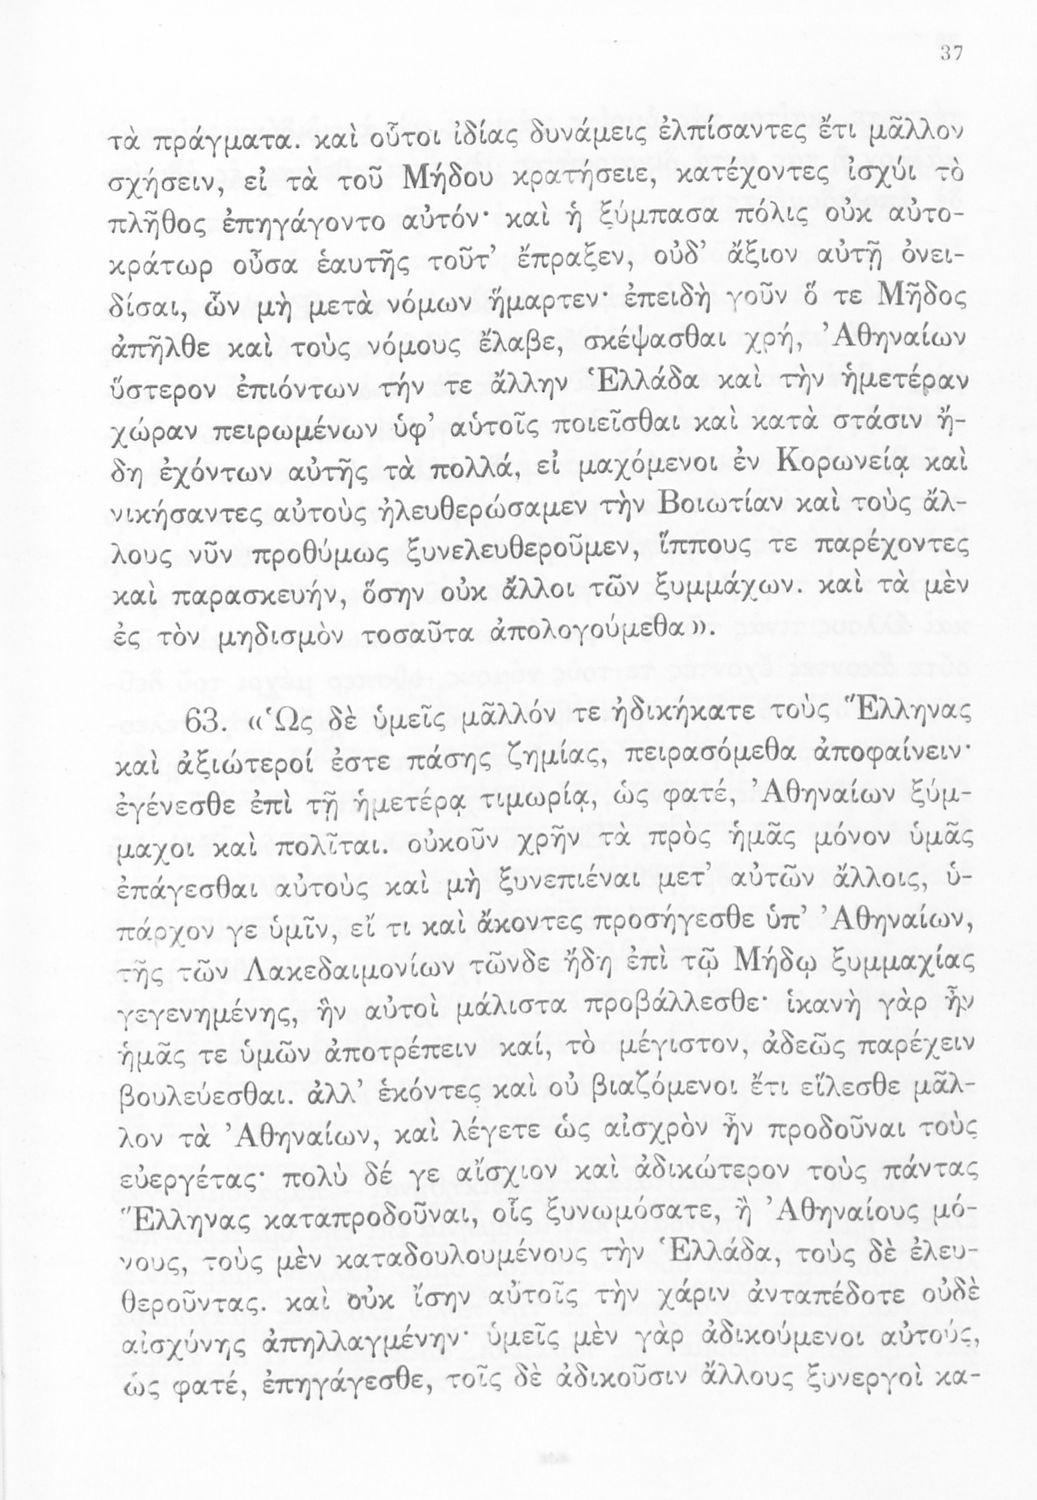 37
τὰ πράγματα. καὶ οὗτοι ἰδίας δυνάμεις ἐλπίσαντες ἔτι μᾶλλον
σχήσειν, εἰ τὰ τοῦ Μήδου κρατήσειε, κατέχοντες ἰσχύι τὸ
πλῆθος ἐπηγάγοντο αὐτόν· καὶ ἡ ξύμπασα πόλις οὐκ αὐτο-
κράτωρ οὖσα ἑαυτῆς τοῦτ’ ἔπραξεν, οὐδ’ ἄξιον αὐτῇ ὀνει-
δίσαι, ὧν μὴ μετὰ νόμων ἥμαρτεν· ἐπειδὴ γοῦν ὅ τε Μῆδος
ἀπῆλθε καὶ τοὺς νόμους ἔλαβε, σκέψασθαι χρή, Ἀθηναίων
ὕστερον ἐπιόντων τήν τε ἄλλην Ἑλλάδα καὶ τὴν ἡμετέραν
χώραν πειρωμένων ὑφ’ αὑτοῖς ποιεῖσθαι καὶ κατὰ στάσιν ἤ-
δη ἐχόντων αὐτῆς τὰ πολλά, εἰ μαχόμενοι ἐν Κορωνείᾳ καὶ
νικήσαντες αὐτοὺς ἠλευθερώσαμεν τὴν Βοιωτίαν καὶ τοὺς ἄλ-
λους νῦν προθύμως ξυνελευθεροῦμεν, ἵππους τε παρέχοντες
καὶ παρασκευήν, ὅσην οὐκ ἄλλοι τῶν ξυμμάχων. καὶ τὰ μὲν
ἐς τὸν μηδισμὸν τοσαῦτα ἀπολογούμεθα».
63. «Ὡς δὲ ὑμεῖς μᾶλλόν τε ἠδικήκατε τοὺς Ἕλληνας
καὶ ἀξιώτεροί ἐστε πάσης ζημίας, πειρασόμεθα ἀποφαίνειν·
ἐγένεσθε ἐπὶ τῇ ἡμετέρᾳ τιμωρίᾳ, ὡς φατέ, Ἀθηναίων ξύμ-
μαχοι καὶ πολῖται. οὐκοῦν χρῆν τὰ πρὸς ἡμᾶς μόνον ὑμᾶς
ἐπάγεσθαι αὐτοὺς καὶ μὴ ξυνεπιέναι μετ’ αὐτῶν ἄλλοις, ὑ-
πάρχον γε ὑμῖν, εἴ τι καὶ ἄκοντες προσήγεσθε ὑπ’ Ἀθηναίων,
τῆς τῶν Λακεδαιμονίων τῶνδε ἤδη ἐπὶ τῷ Μήδῳ ξυμμαχίας
γεγενημένης, ἣν αὐτοὶ μάλιστα προβάλλεσθε· ἱκανὴ γὰρ ἦν
ἡμᾶς τε ὑμῶν ἀποτρέπειν καί, τὸ μέγιστον, ἀδεῶς παρέχειν
βουλεύεσθαι. ἀλλ’ ἑκόντες καὶ οὐ βιαζόμενοι ἔτι εἵλεσθε μᾶλ-
λον τὰ Ἀθηναίων, καὶ λέγετε ὡς αἰσχρὸν ἦν προδοῦναι τοὺς
εὐεργέτας· πολὺ δέ γε αἴσχιον καὶ ἀδικώτερον τοὺς πάντας
Ἕλληνας καταπροδοῦναι, οἷς ξυνωμόσατε, ἢ Ἀθηναίους μό-
νους, τοὺς μὲν καταδουλουμένους τὴν Ἑλλάδα, τοὺς δὲ ἐλευ-
θεροῦντας. καὶ οὐκ ἴσην αὐτοῖς τὴν χάριν ἀνταπέδοτε οὐδὲ
αἰσχύνης ἀπηλλαγμένην· ὑμεῖς μὲν γὰρ ἀδικούμενοι αὐτούς,
ὡς φατέ, ἐπηγάγεσθε, τοῖς δὲ ἀδικοῦσιν ἄλλους ξυνεργοὶ κα-